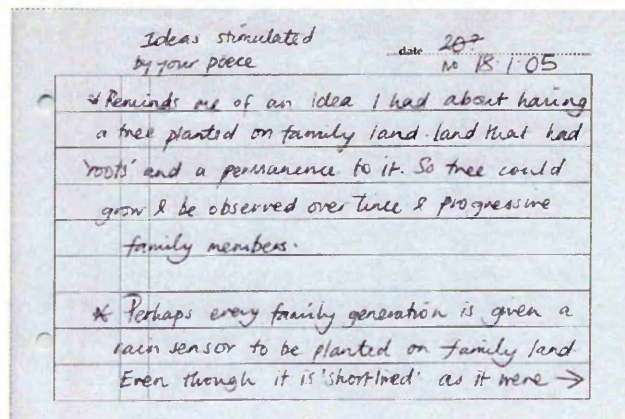 Ideas stimulated
by your piece
date 20?
No 18·1·05
* Reminds me of an idea I had about having
a tree planted on family land. land that had
'roots' and a permanence to it. So tree could
grow & be observed over time & progressive
family members.
* Perhaps every family generation is given a
rain sensor to be planted on family land.
Even though it is 'shortlived' as it were →